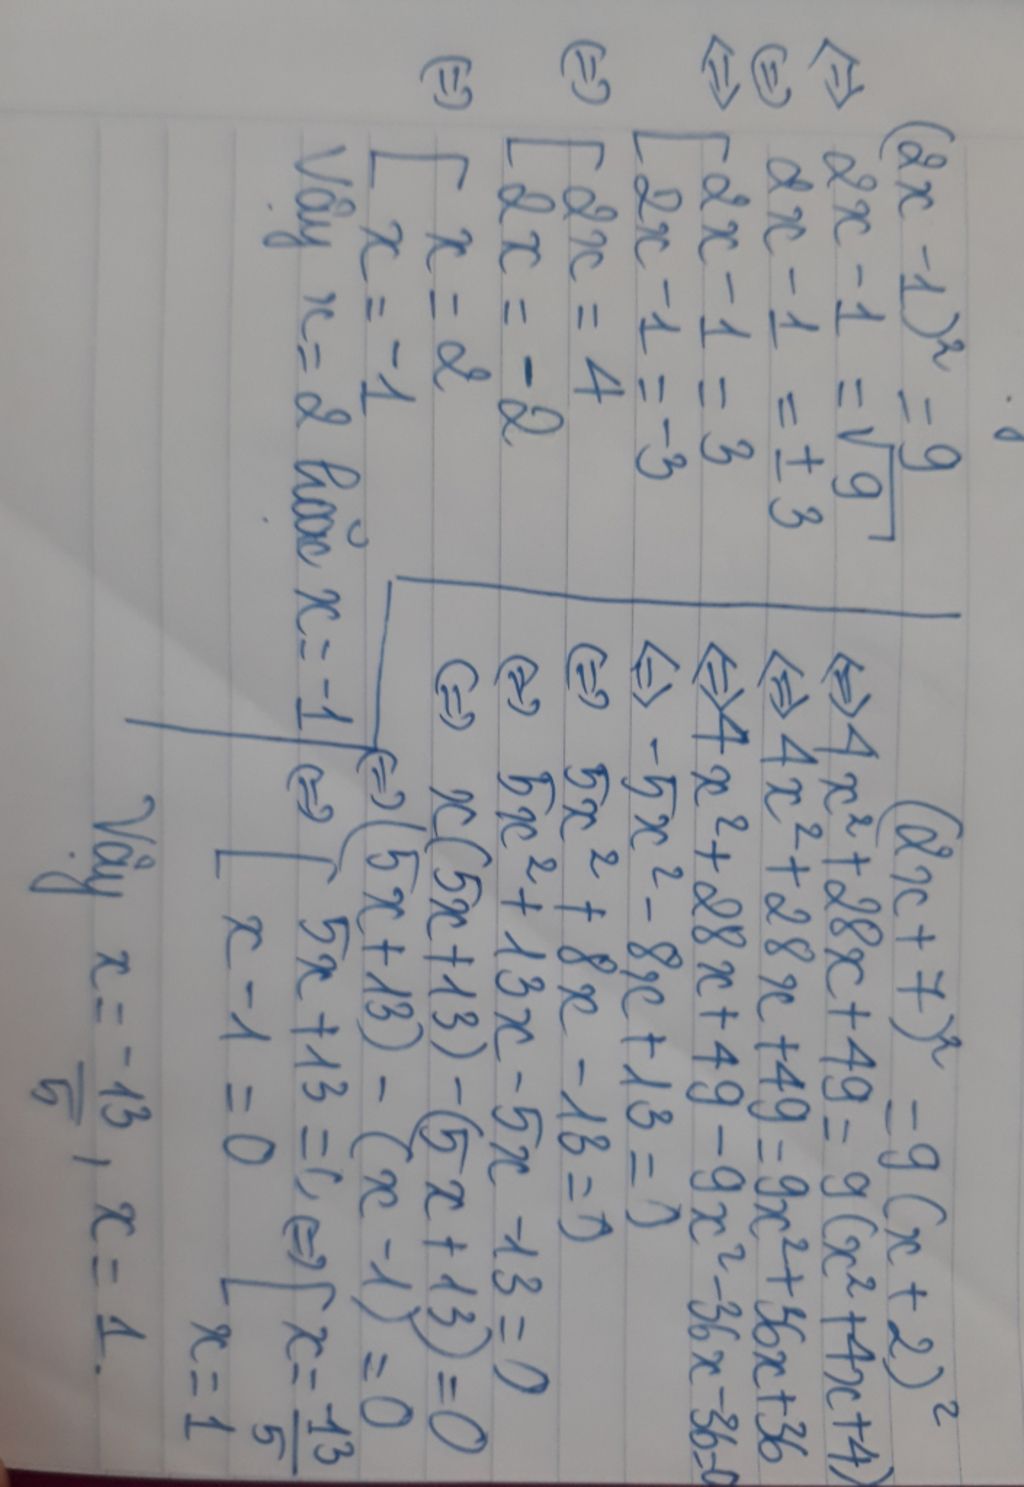 (2x - 1)² = 9
⇔ 2x - 1 = √9
⇔ 2x - 1 = ± 3
⇔ [ 2x - 1 = 3
[ 2x - 1 = -3
⇔ [ 2x = 4
[ 2x = -2
⇔ [ x = 2
[ x = -1
Vậy x = 2 hoặc x = -1
(2x + 7)² = 9(x + 2)²
⇔ 4x² + 28x + 49 = 9(x² + 4x + 4)
⇔ 4x² + 28x + 49 = 9x² + 36x + 36
⇔ 4x² + 28x + 49 - 9x² - 36x - 36 = 0
⇔ -5x² - 8x + 13 = 0
⇔ 5x² + 8x - 13 = 0
⇔ 5x² + 13x - 5x - 13 = 0
⇔ x(5x + 13) - (5x + 13) = 0
⇔ (5x + 13) - (x - 1) = 0
⇔ [ 5x + 13 = 0 ⇔ [ x = -13/5
[ x - 1 = 0 [ x = 1
Vậy x = -13/5, x = 1.